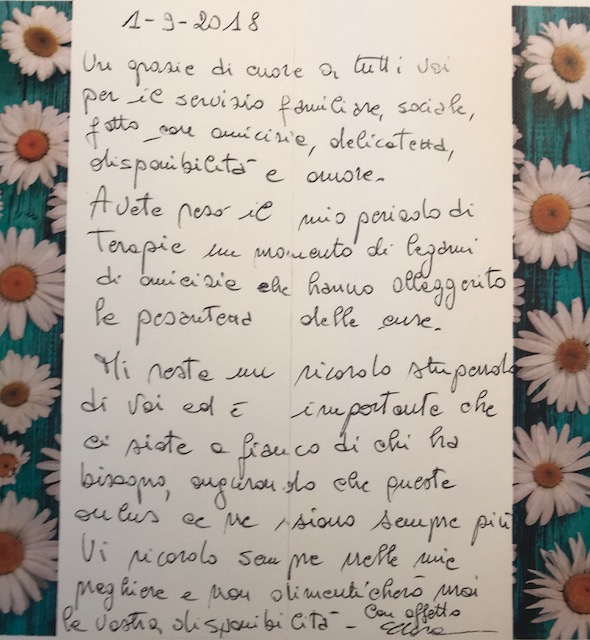 1-9-2018
Un grazie di cuore a tutti voi
per il servizio familiare, sociale,
fatto con amicizia, delicatezza,
disponibilità e amore.
Avete reso il mio periodo di
Terapie un momento di legami
di amicizie che hanno alleggerito
la pesantezza delle cure.
Mi resta un ricordo stupendo
di Voi ed è importante che
ci siate a fianco di chi ha
bisogno, augurando che queste
onlus ce ne siano sempre più
Vi ricordo sempre nelle mie
preghiere e non dimenticherò mai
la vostra disponibilità - Con affetto